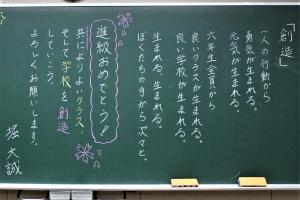 「創造」
一人の行動から
勇気が生まれる。
元気が生まれる。
六年生全員から
良いクラスが生まれる。
良い学校が生まれる。
生まれる、生まれる。
ぼくたちの手から次々と。
進級おめでとう!
共によりよいクラス、
そして学校を創造
していこう。
よろしくお願いします。
堀 大誠